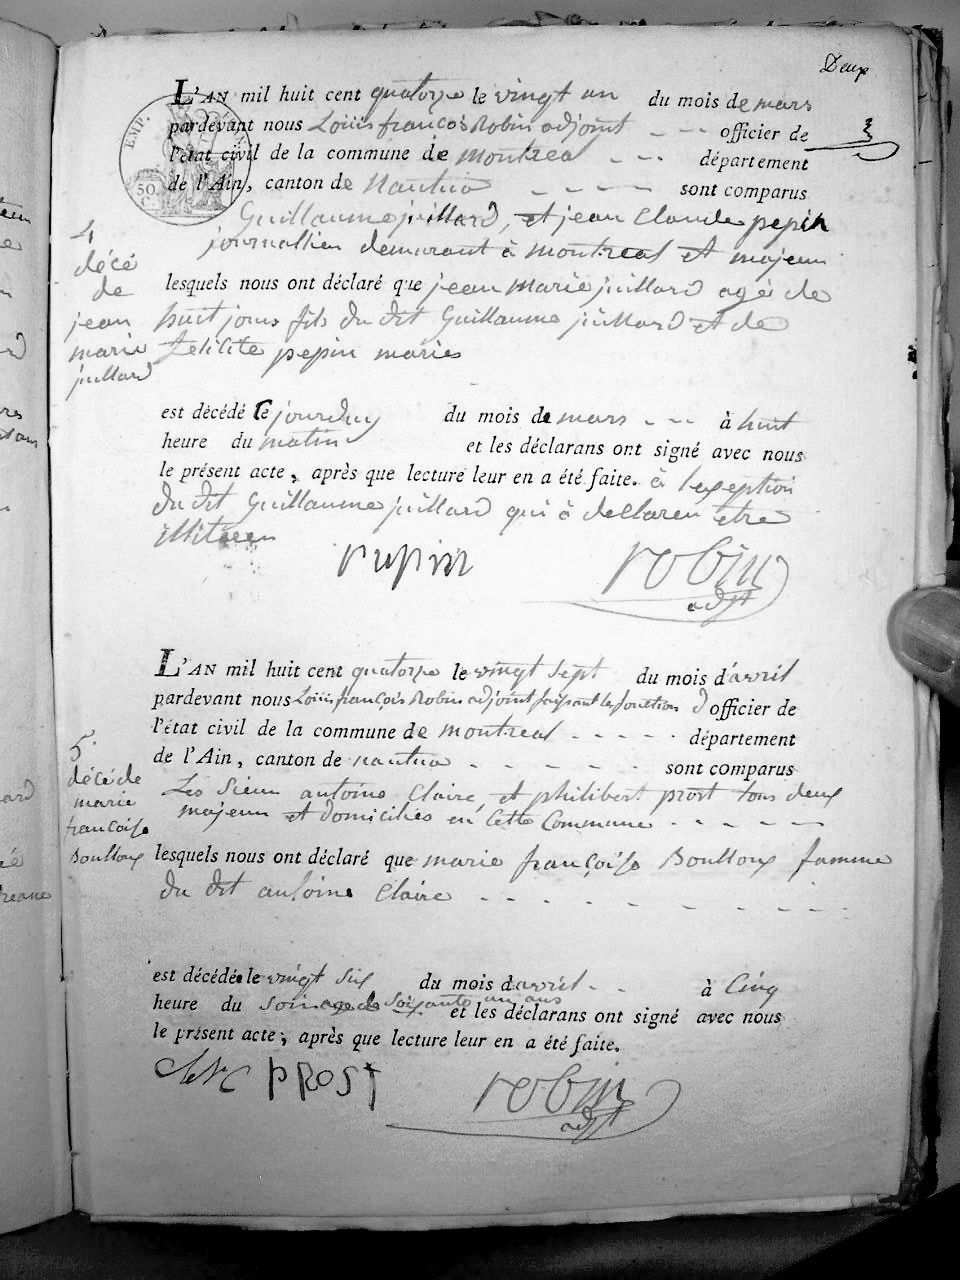 Deux
L'AN mil huit cent quatorze le vingt un du mois de mars
pardevant nous Louis françois Robin adjoint officier de
l'état civil de la commune de montreal département
de l'Ain, canton de Nantua sont comparus
Guillaume juillard, et jean Claude pepin
journallier demurant à montreal et majeur
EMP.
50.
C.
4
décé
de
jean
marie
juillard
lesquels nous ont déclaré que jean marie juillard agé de
huit jours fils du dit Guillaume juillard et de
felicite pepin mariés
est décédé le jourduy du mois de mars à huit
heure du matin et les déclarans ont signé avec nous
le présent acte, après que lecture leur en a été faite. à lexeption
du dit Guillaume juillard qui à dellaren être
illiteren
pepin robin
adjt
L'AN mil huit cent quatorze le vingt sept du mois d'avril
pardevant nous Louis françois Robin adjoint faisant les fonctions d officier de
l'état civil de la commune de montreal département
de l'Ain, canton de nantua sont comparus
Les Sieur antoine Claire, et philibert prost tous deux
majeur et domiciliés en Cette Commune
5
décé de
marie
françoise
Boulloux
lesquels nous ont déclaré que marie françoise Boulloux famme
du dit antoine Claire
est décédée le vingt six du mois d'avril à Cinq
heure du soir age de soixante un ans et les déclarans ont signé avec nous
le présent acte, après que lecture leur en a été faite.
PROST robin
adjt